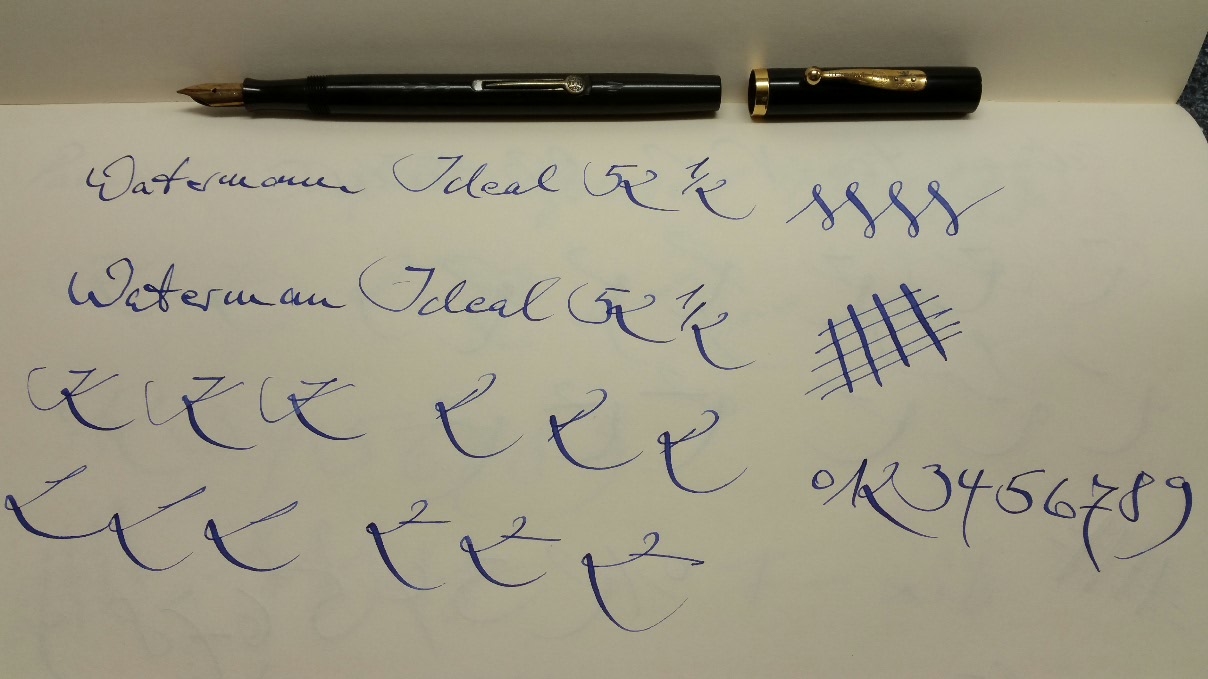 Watermann Ideal 52 1/2
Waterman Ideal 52 1/2
0123456789